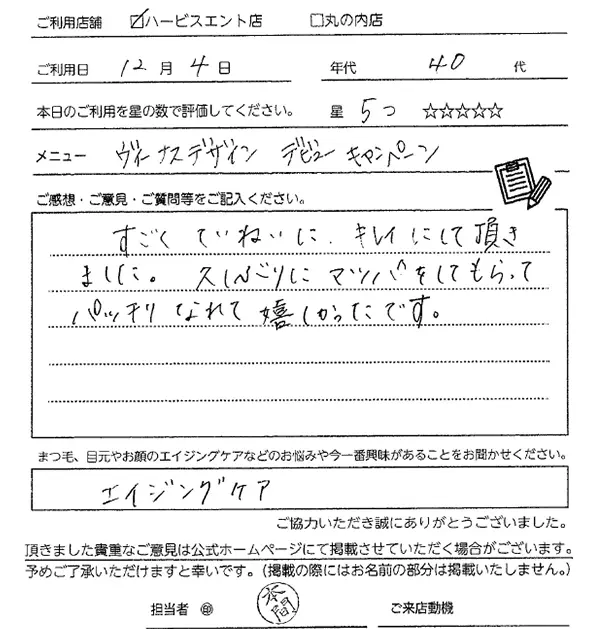 ご利用店舗 ☑ハービスエント店 □丸の内店
ご利用日 12月4日 年代 40代
本日のご利用を星の数で評価してください。 星 5つ ☆☆☆☆☆
メニュー ヴィーナスデザイン デビューキャンペーン
ご感想・ご意見・ご質問等をご記入ください。
すごくていねいに、キレイにして頂き
ました。久しぶりにマツパをしてもらって
パッチリなれて嬉しかったです。
まつ毛、目元やお顔のエイジングケアなどのお悩みや今一番興味があることをお聞かせください。
エイジングケア
ご協力いただき誠にありがとうございました。
頂きました貴重なご意見は公式ホームページにて掲載させていただく場合がございます。
予めご了承いただけますと幸いです。（掲載の際にはお名前の部分は掲載いたしません。）
担当者 ㊞ 本間 ご来店動機